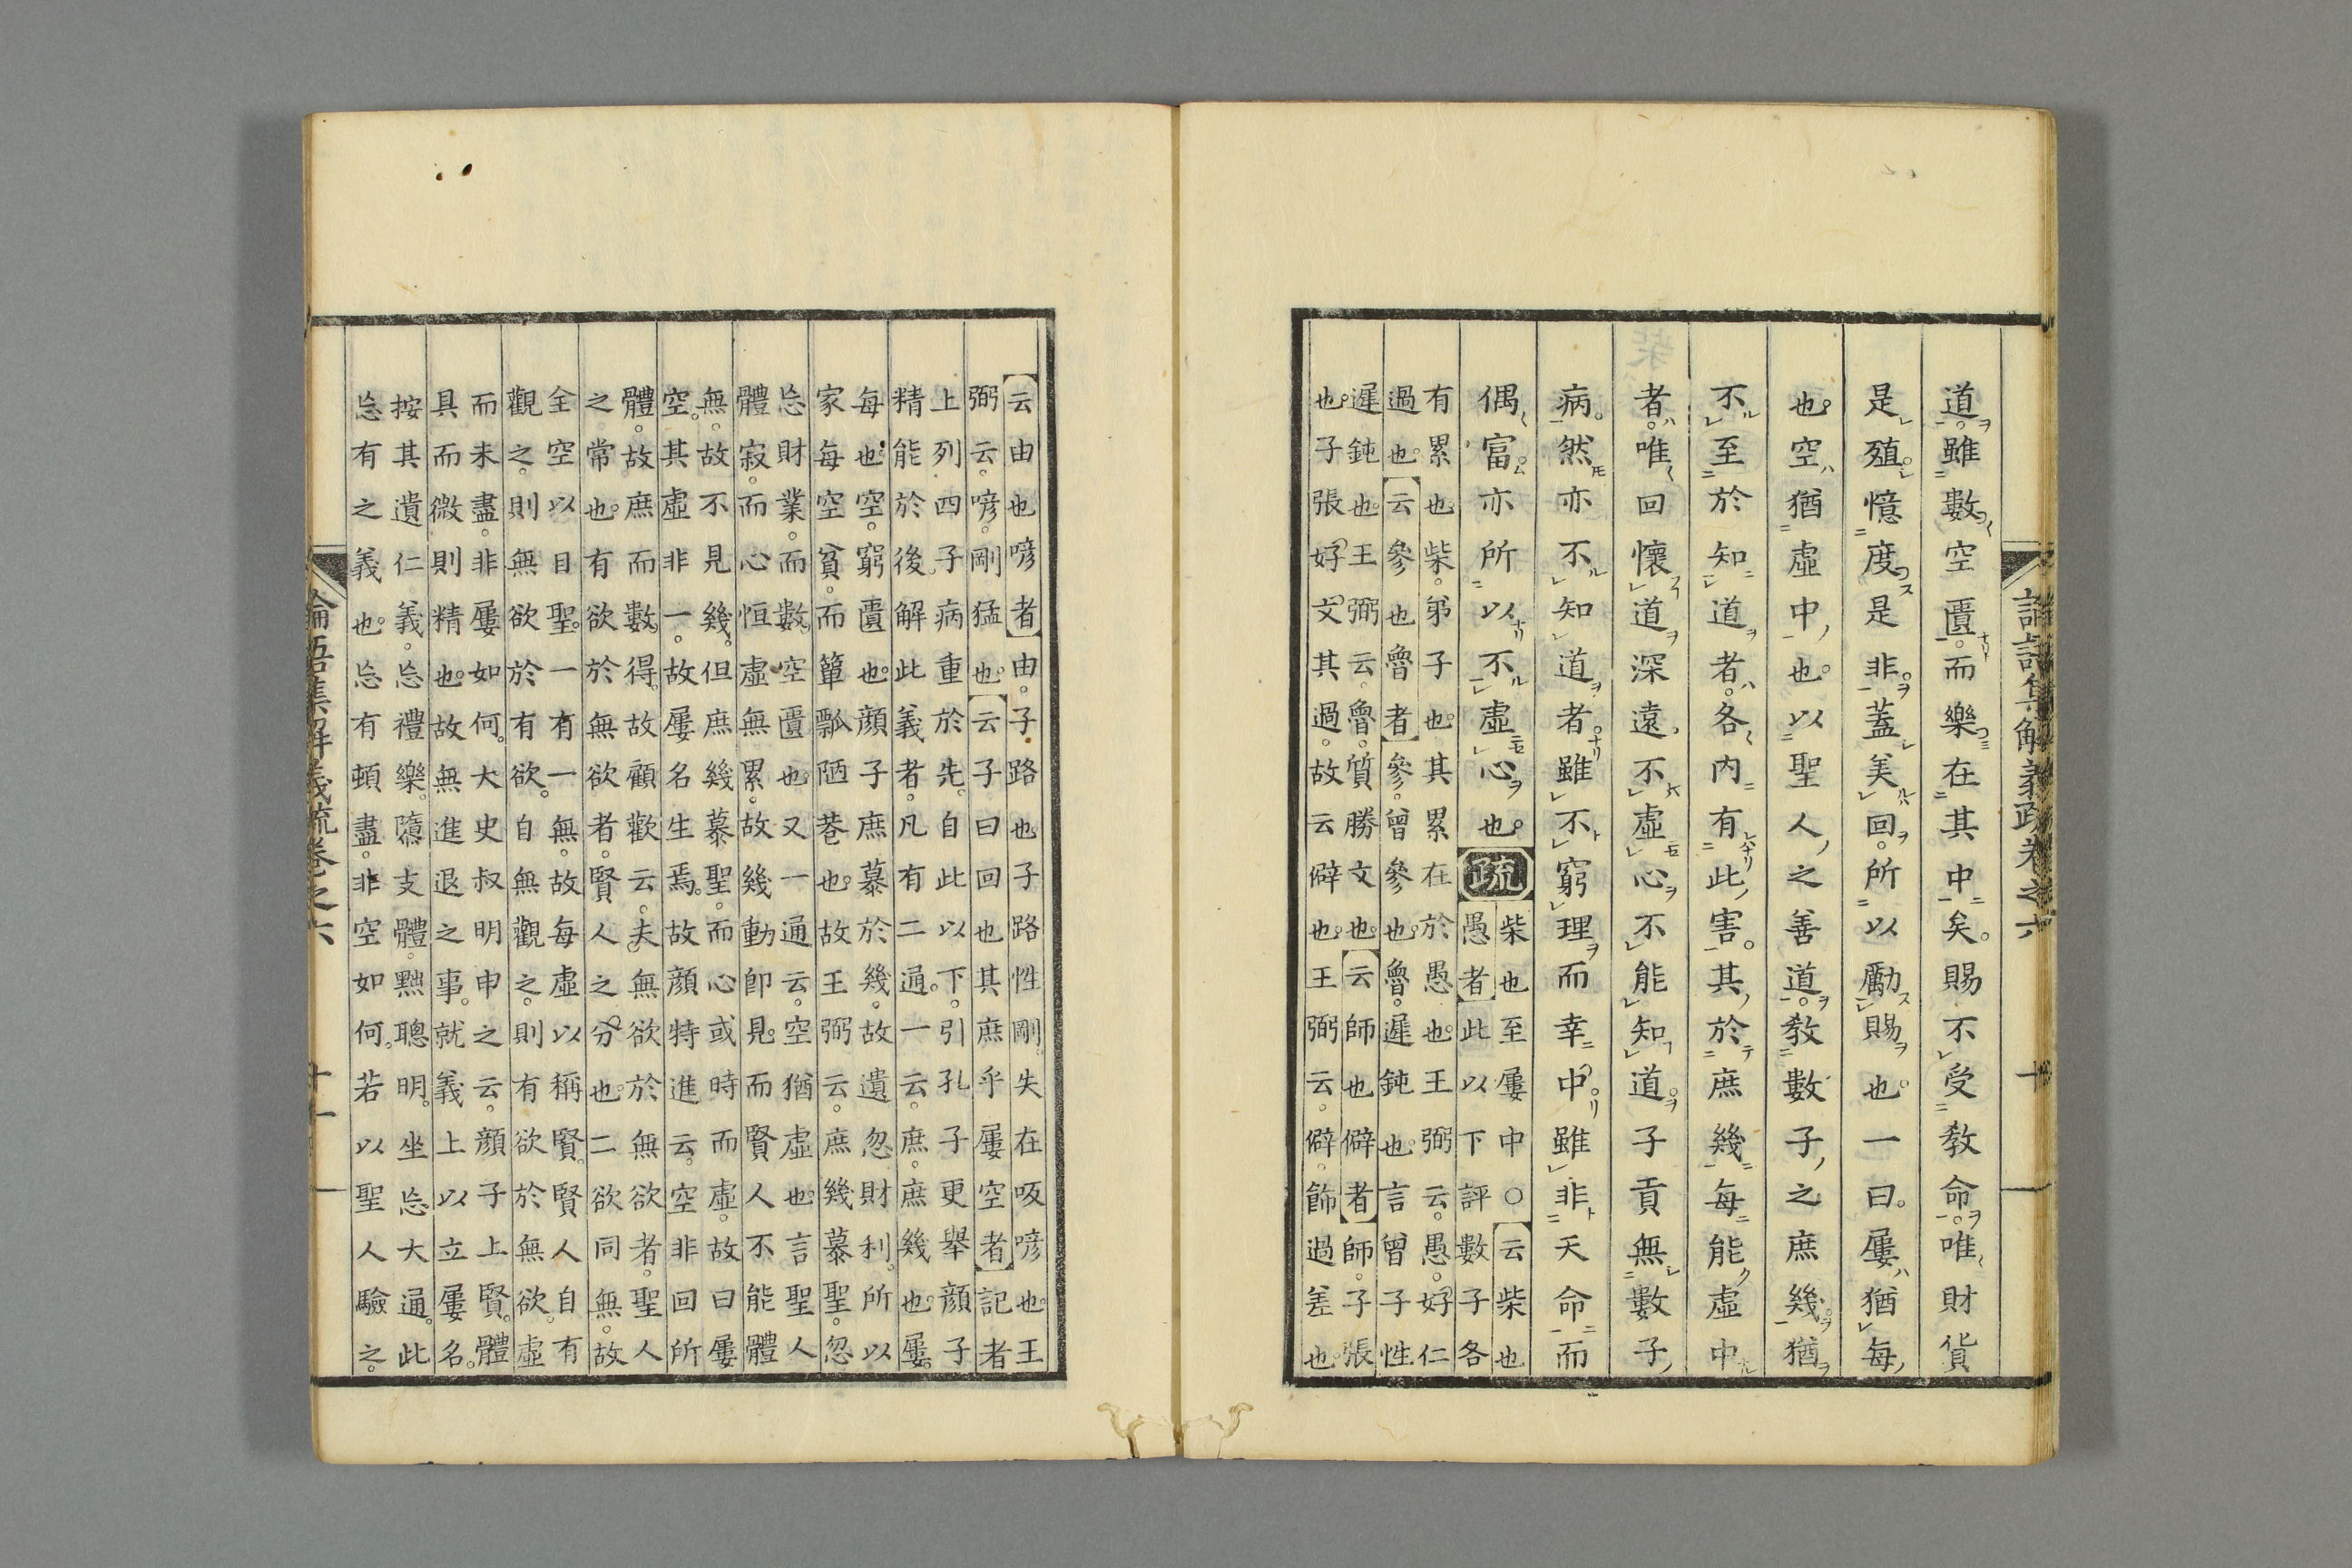 道雖數空匱而樂在其中矣賜不受敎命唯財貨
是殖憶度是非蓋美回所以勵賜也一曰屢猶每
也空猶虛中也以聖人之善道敎數子之庶幾猶
不至於知道者各內有此害其於庶幾每能虛中
者唯回懷道深遠不虛心不能知道子貢無數子
病然亦不知道者雖不窮理而幸中雖非天命而
偶富亦所以不虛心也
疏
柴也至屢中○云柴也
愚者此以下評數子各
有累也柴弟子也其累在於愚也王弼云愚好仁
過也云參也魯者參曾參也魯遲鈍也言曾子性
遲鈍也王弼云魯質勝文也云師也僻者師子張
也子張好文其過故云僻也王弼云僻飾過差也
論語集解義疏卷之六
云由也喭者由子路也子路性剛失在吸喭也王
弼云喭剛猛也云子曰回也其庶乎屢空者記者
上列四子病重於先自此以下引孔子更舉顏子
精能於後解此義者凡有二通一云庶庶幾也屢
每也空窮匱也顏子庶慕於幾故遺忽財利所以
家每空貧而簞瓢陋巷也故王弼云庶幾慕聖忽
忘財業而數空匱也又一通云空猶虛也言聖人
體寂而心恒虛無累故幾動卽見而賢人不能體
無故不見幾但庶幾慕聖而心或時而虛故曰屢
空其虛非一故屢名生焉故顏特進云空非回所
體故庶而數得故顧歡云夫無欲於無欲者聖人
之常也有欲於無欲者賢人之分也二欲同無故
全空以目聖一有一無故每虛以稱賢賢人自有
觀之則無欲於有欲自無觀之則有欲於無欲虛
而未盡非屢如何大史叔明申之云顏子上賢體
具而微則精也故無進退之事就義上以立屢名
按其遺仁義忘禮樂隳支體黜聰明坐忘大通此
忘有之義也忘有頓盡非空如何若以聖人驗之
論語集解義疏卷之六
十一